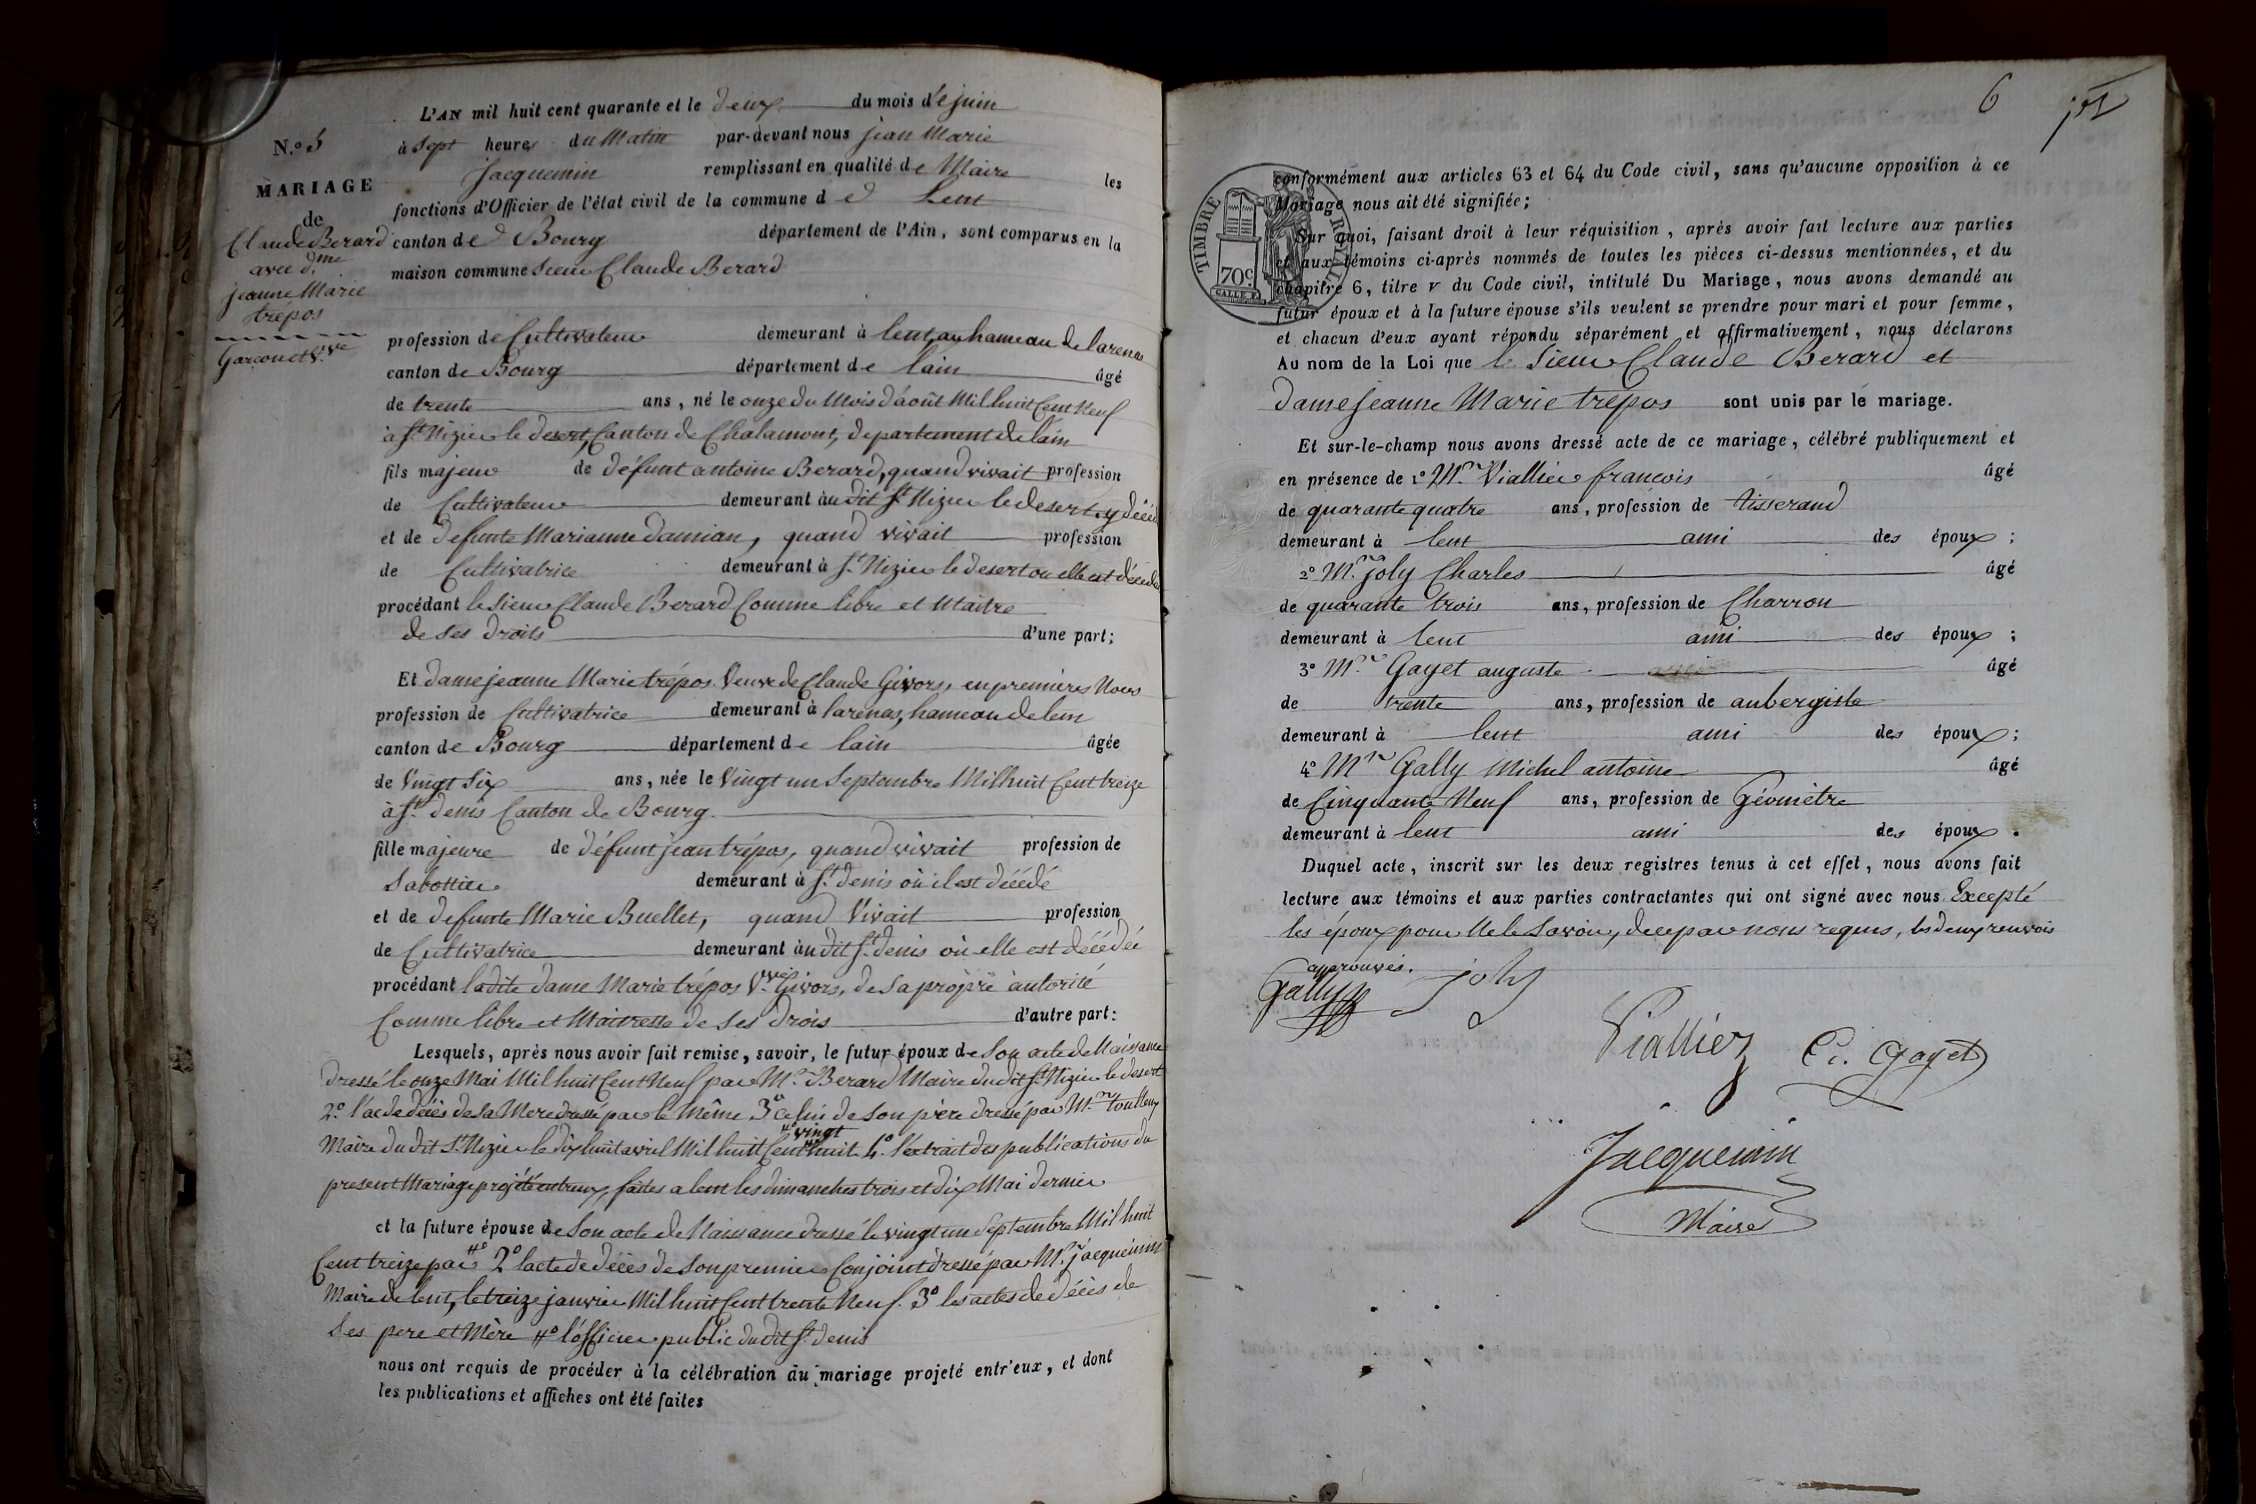 N.o 5
MARIAGE
de
Claude Berard
avec d.me
jeanne Marie
trépos
Garçon et V.ve
L'AN mil huit cent quarante et le deux du mois de juin
à Sept heures du Matin par-devant nous jean Marie
Jacquemin remplissant en qualité de Maire les
fonctions d'Officier de l'état civil de la commune de Lent
canton de Bourg département de l'Ain, sont comparus en la
maison commune Sieur Claude Berard
profession de Cultivateur demeurant à lent, au hameau de larenas
canton de Bourg département de lain âgé
de trente ans, né le onze du Mois d'août Mil huit Cent Neuf
à St. Nizier le desert, Canton de Chalamont, departement de lain
fils majeur de défunt antoine Berard, quand vivait profession
de Cultivateur demeurant au dit St Nizier le desert, y décédé
et de defunte Marianne damian, quand vivait profession
de Cultivatrice demeurant à St. Nizier le desert ou elle est décédée
procédant le Sieur Claude Berard Comme libre et Maitre
de Ses droits d'une part;
Et dame jeanne Marie trépos Veuve de Claude Givors, en premières Noces
profession de Cultivatrice demeurant à larenas, hameau de lent
canton de Bourg département de lain âgée
de Vingt Six ans, née le Vingt un Septembre Mil huit Cent treize
à St. denis Canton de Bourg
fille majeure de défunt jean trépos, quand vivait profession de
Sabottier demeurant à St. denis où il est décédé
et de defunte Marie Buellet, quand Vivait profession
de Cultivatrice demeurant au dit St. denis où elle est décédée
procédant ladite dame Marie trépos V.ve Givors, de Sa propre autorité
Comme libre et Maitresse de Ses droits d'autre part:
Lesquels, après nous avoir fait remise, savoir, le futur époux de Son acte de Naissance
dressé le onze Mai Mil huit Cent Neuf par Mr. Berard Maire du dit St. Nizier le desert
2.o l'ac de décès de Sa Mere dressé par le même 3o celui de Son père dressé par Mr.
vingt
Maire du dit St. Nizier le dix huit avril Mil huit Cent huit 4.o l'extrait des publications du
present Mariage projété entreux, faites a lent les dimanches trois et dix Mai dernier
et la future épouse de Son acte de Naissance dressé le vingt un Septembre Mil huit
Cent treize par 2o lacte de décès de Son premier Conjoint dressé par Mr. jacquemin
Maire de lent, le treize janvier Mil huit Cent trente Neuf. 3o les actes de décès de
Ses pere et Mère l'officier public du dit St. denis
nous ont requis de procéder à la célébration du mariage projeté entr'eux, et dont
les publications et affiches ont été faites
6
TIMBRE ROYAL
70c
conformément aux articles 63 et 64 du Code civil, sans qu'aucune opposition à ce
Mariage nous ait été signifiée;
Sur quoi, faisant droit à leur réquisition, après avoir fait lecture aux parties
et aux témoins ci-après nommés de toutes les pièces ci-dessus mentionnées, et du
chapitre 6, titre v du Code civil, intitulé Du Mariage, nous avons demandé au
futur époux et à la future épouse s'ils veulent se prendre pour mari et pour femme,
et chacun d'eux ayant répondu séparément et affirmativement, nous déclarons
Au nom de la Loi que le Sieur Claude Berard et
dame jeanne Marie trépos sont unis par le mariage.
Et sur-le-champ nous avons dressé acte de ce mariage, célébré publiquement et
en présence de 1o Mr. Viallier francois âgé
de quarante quatre ans, profession de tisserand
demeurant à lent ami des époux;
2o Mr. joly Charles âgé
de quarante trois ans, profession de Charron
demeurant à lent ami des époux;
3o Mr. Gayet auguste âgé
de trente ans, profession de aubergiste
demeurant à lent ami des époux;
4o Mr. Gally Michel antoine âgé
de Cinquante Neuf ans, profession de Géomètre
demeurant à lent ami des époux.
Duquel acte, inscrit sur les deux registres tenus à cet effet, nous avons fait
lecture aux témoins et aux parties contractantes qui ont signé avec nous Excepté
les époux pour Ne le Savoir, de ce par nous requis, les deux renvois
approuvés.
Gally joly
Viallier Gayet
Jacquemin
Maire